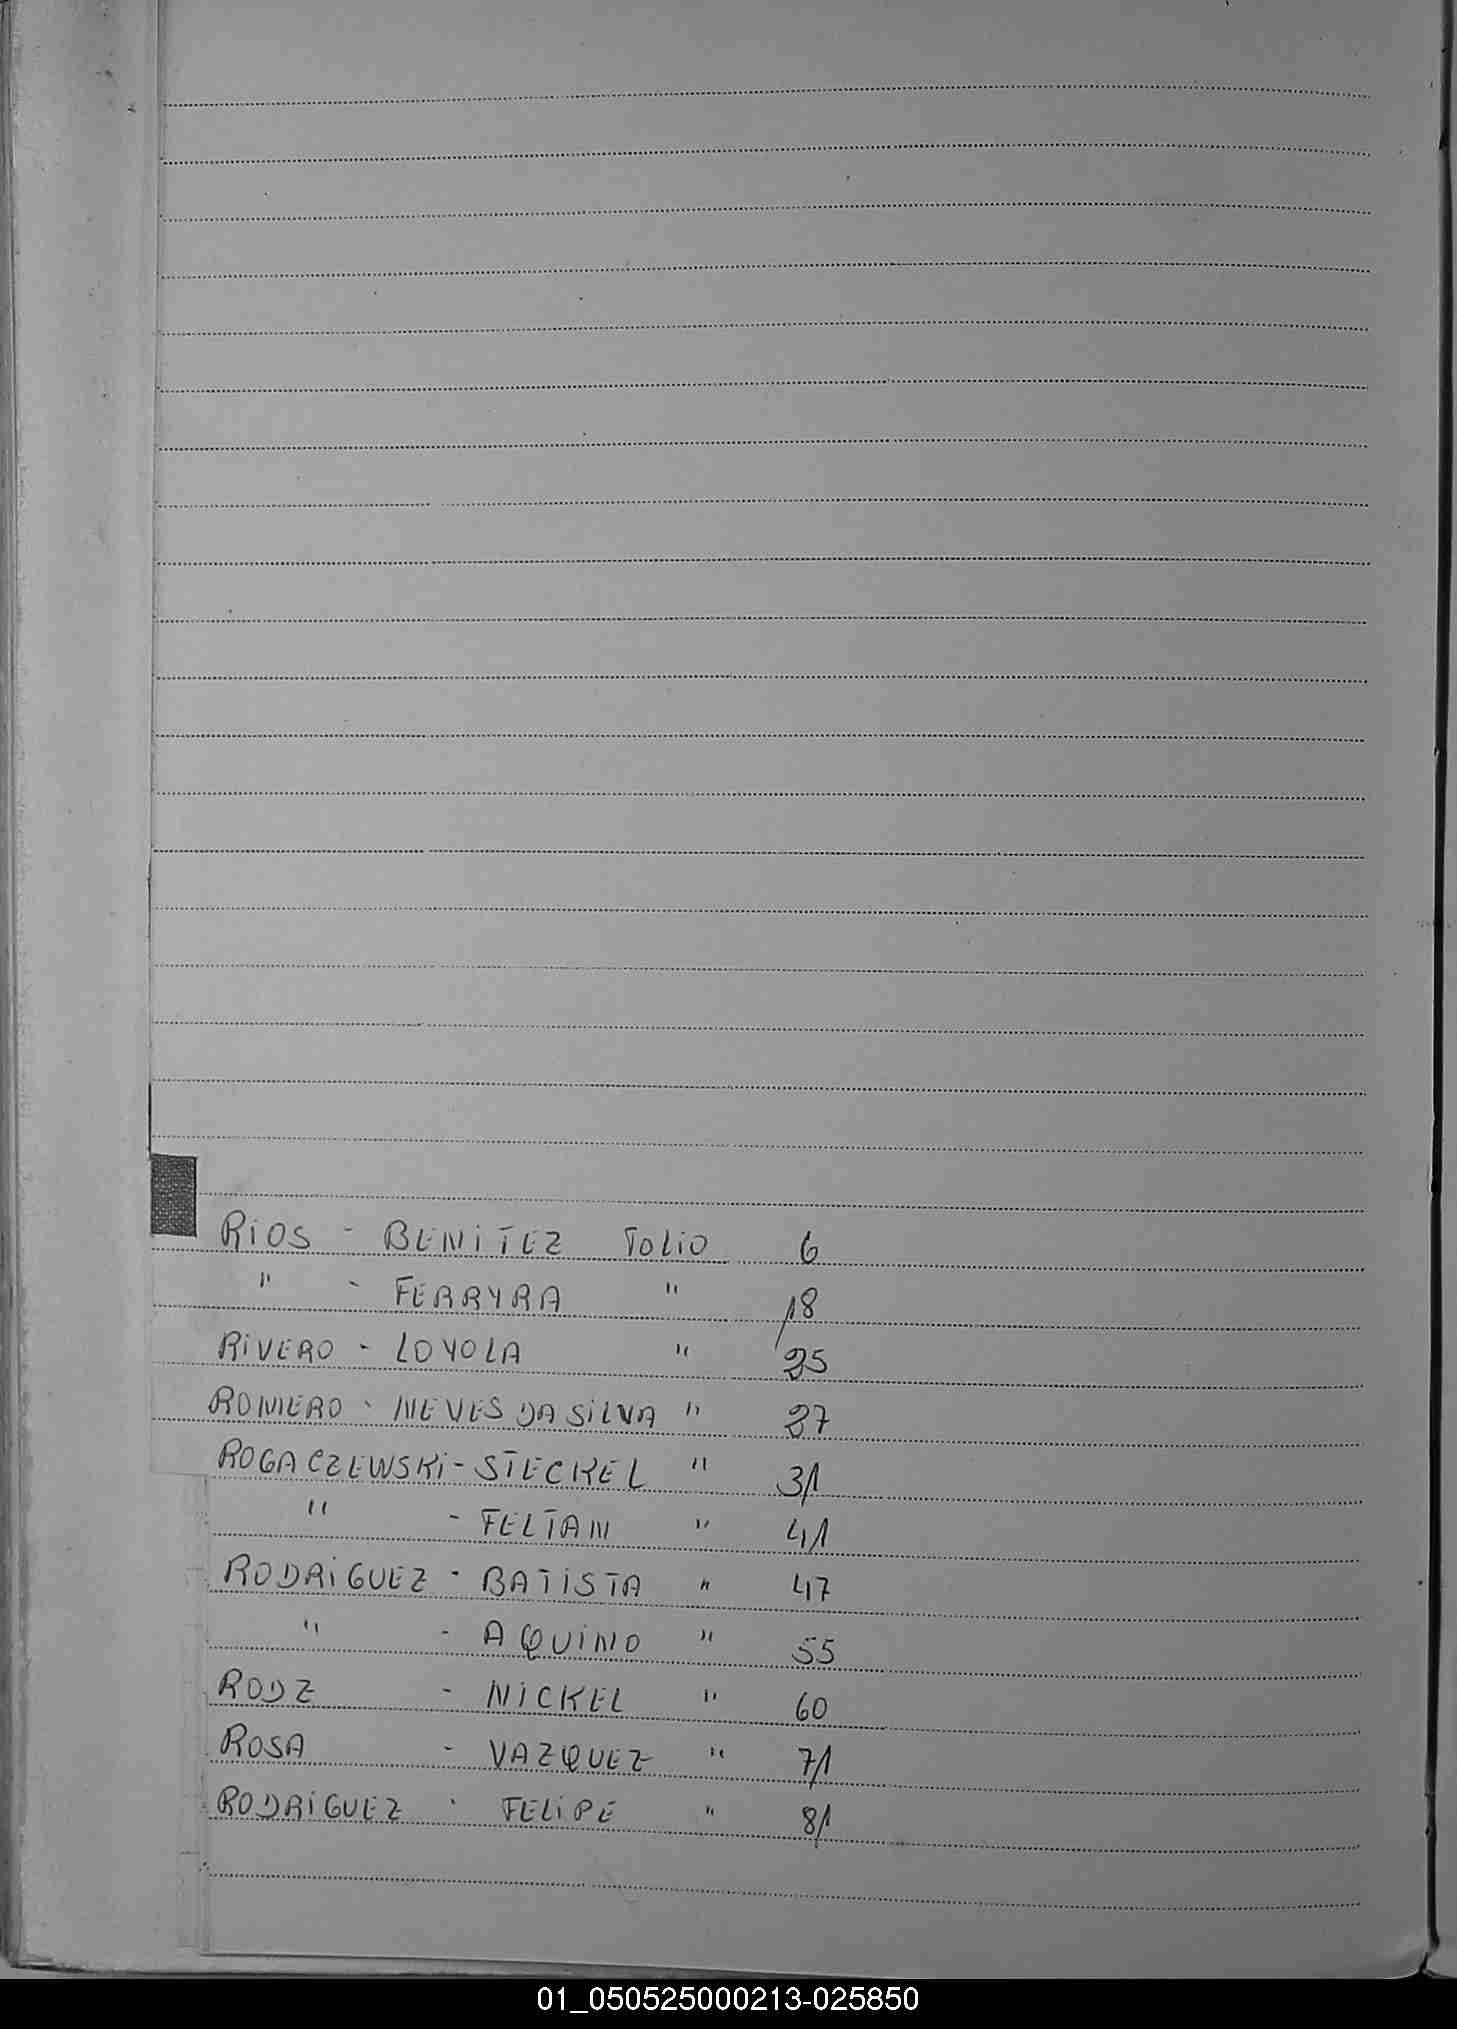 RIOS - BENITEZ FOLIO 6
" - FERRYRA " 18
RIVERO - LOYOLA " 25
ROMERO - NEVES DA SILVA " 27
ROGACZEWSKI - STECKEL " 31
" - FELTAN " 41
RODRIGUEZ - BATISTA " 47
" - AQUINO " 55
RODZ - NICKEL " 60
ROSA - VAZQUEZ " 71
RODRIGUEZ - FELIPE " 81
01_050525000213-025850